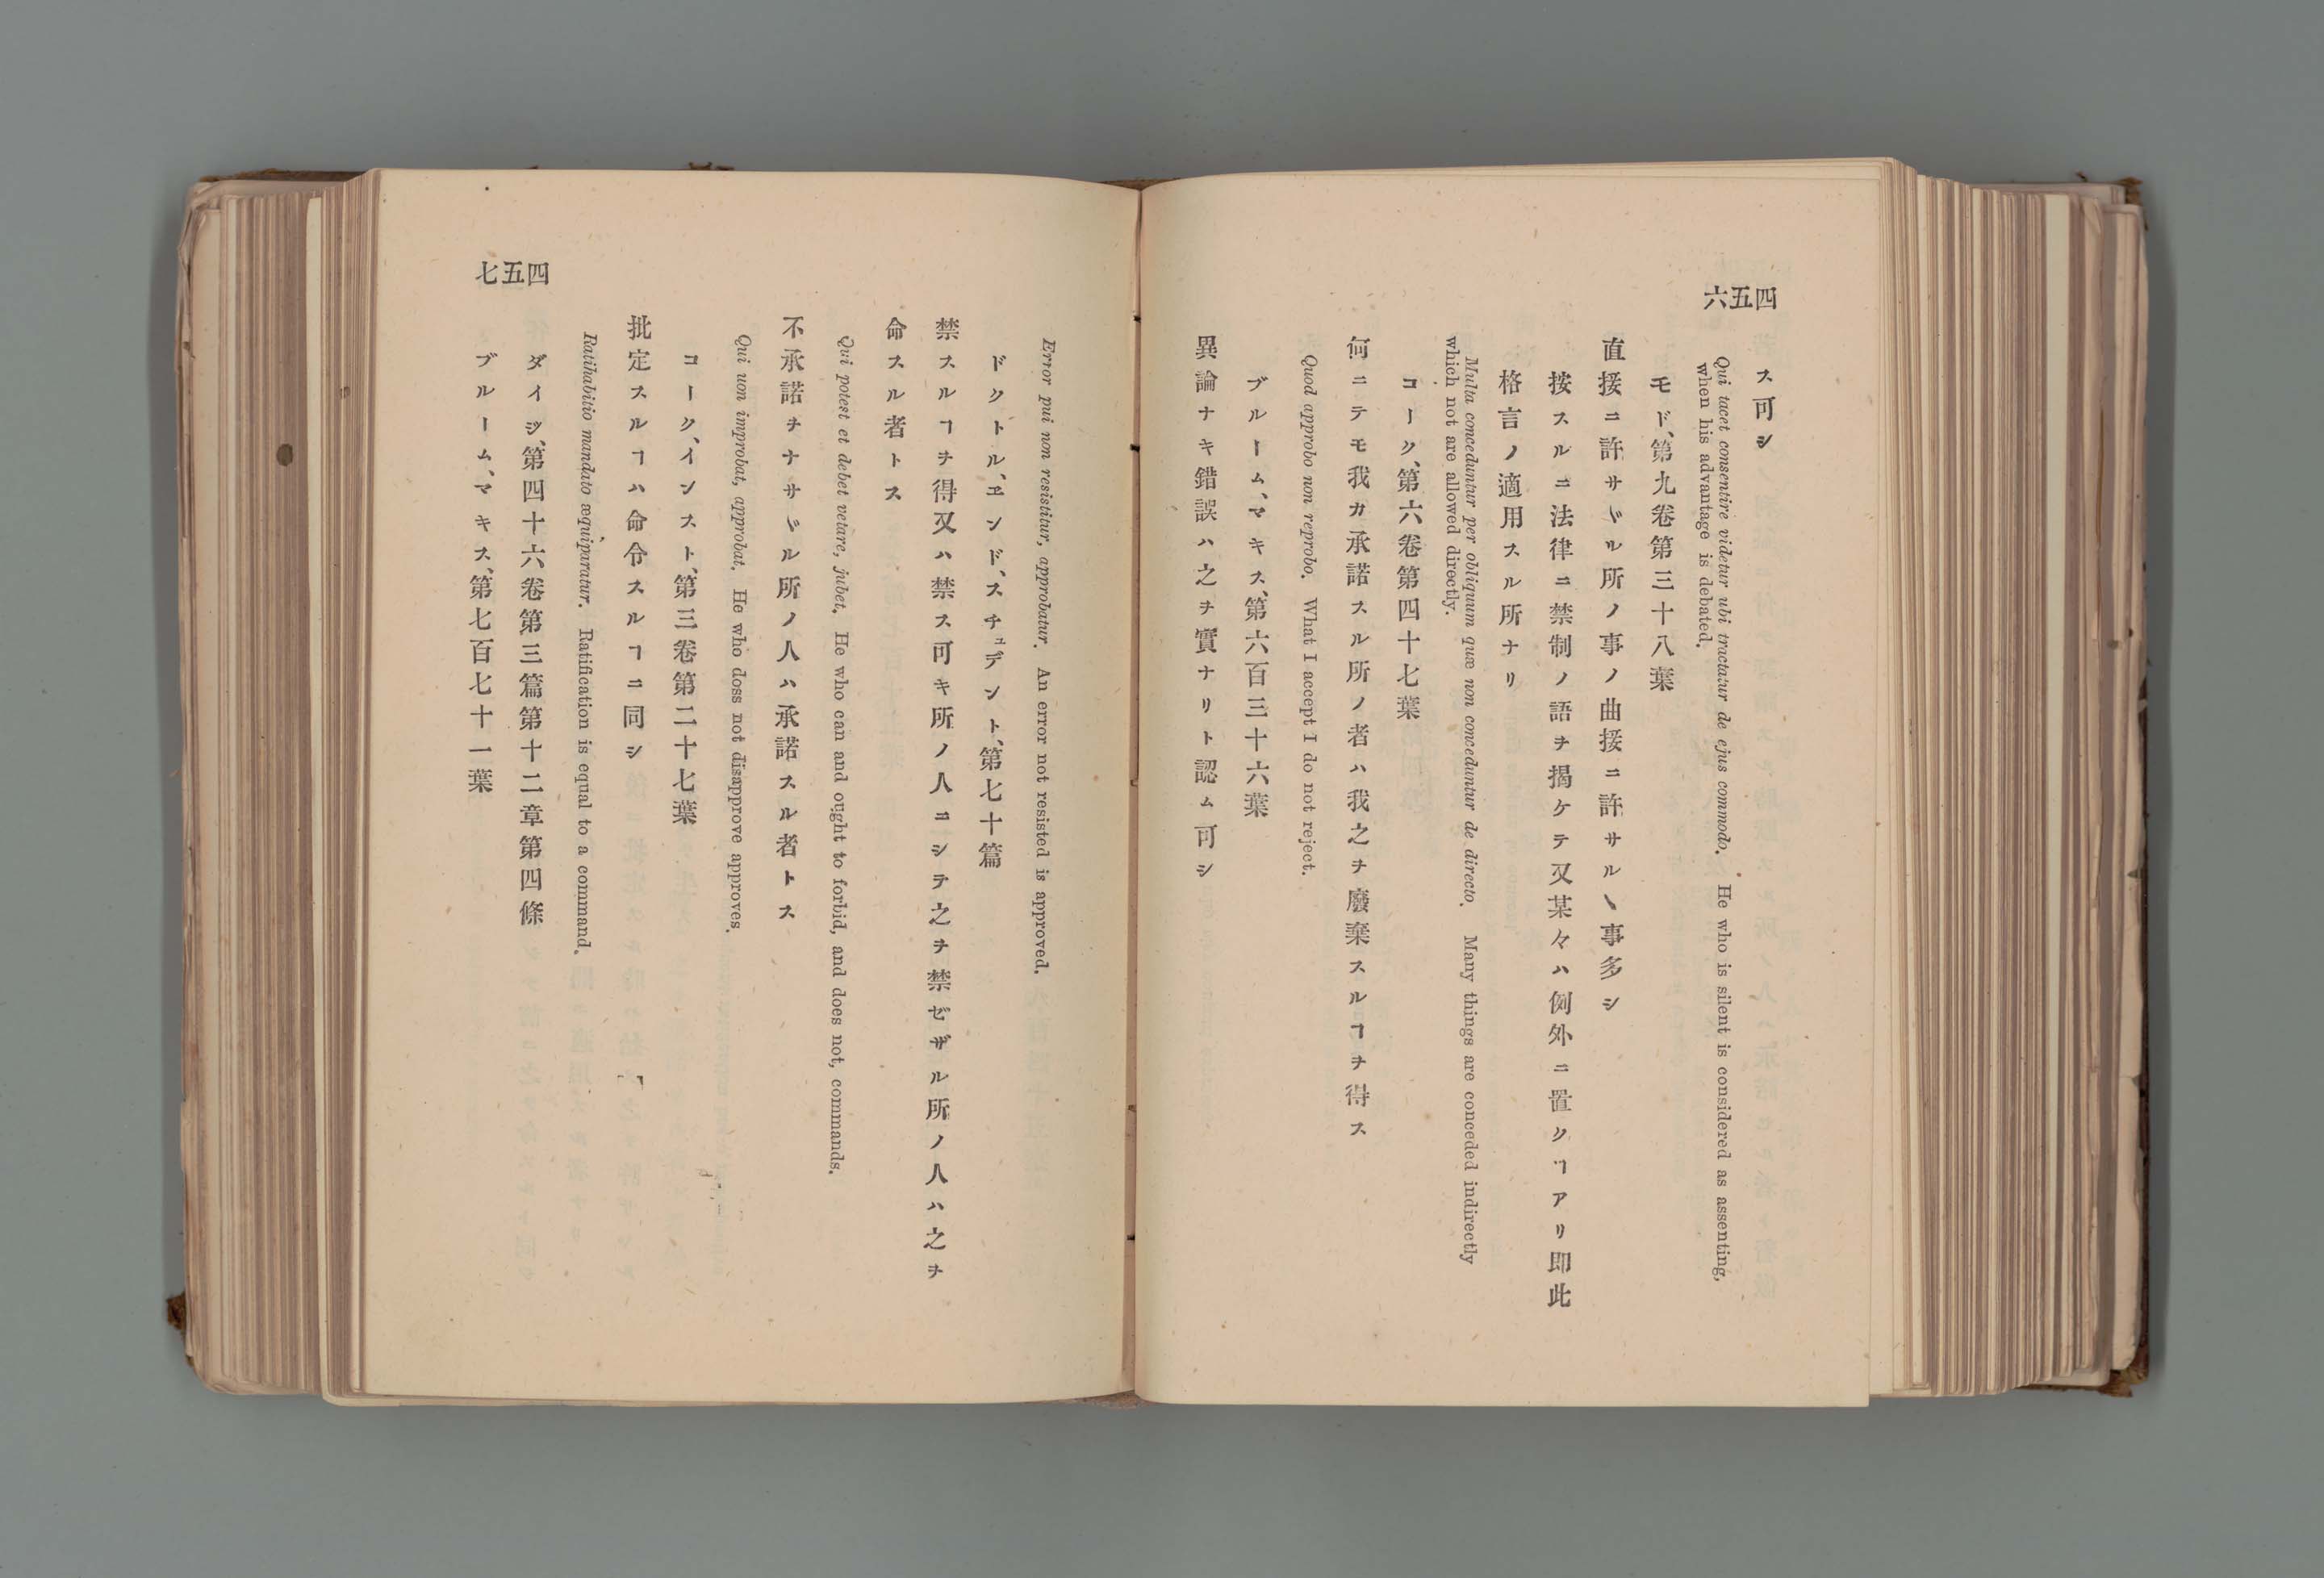 四五六
ス可シ
Qui tacet consentire videtur ubi tractatur de ejus commodo. He who is silent is considered as assenting,
when his advantage is debated.
モド、第九卷第三十八葉
直接ニ許サヾル所ノ事ノ曲接ニ許サルヽ事多シ
按スルニ法律ニ禁制ノ語ヲ揭ケテ又某々ハ例外ニ置クヿアリ即此
格言ノ適用スル所ナリ
Multa conceduntur per obliquum quæ non conceduntur de directo. Many things are conceded indirectly
which not are allowed directly.
コーク、第六卷第四十七葉
何ニテモ我カ承諾スル所ノ者ハ我之ヲ廢棄スルヿヲ得ス
Quod approbo non reprobo. What I accept I do not reject.
ブルーム、マキス、第六百三十六葉
異論ナキ錯誤ハ之ヲ實ナリト認ム可シ
Error pui non resistitur, approbatur. An error not resisted is approved.
ドクトル、ヱンド、スチュデント、第七十篇
禁スルヿヲ得又ハ禁ス可キ所ノ人ニシテ之ヲ禁ゼザル所ノ人ハ之ヲ
命スル者トス
Qui potest et debet vetare, jubet. He who can and ought to forbid, and does not, commands.
不承諾ヲナサヾル所ノ人ハ承諾スル者トス
Qui non improbat, approbat. He who doss not disapprove approves.
コーク、インスト、第三卷第二十七葉
批定スルヿハ命令スルヿニ同シ
Ratihabitio mandato æquiparatur. Ratification is equal to a command.
ダイジ、第四十六卷第三篇第十二章第四條
ブルーム、マキス、第七百七十一葉
四五七